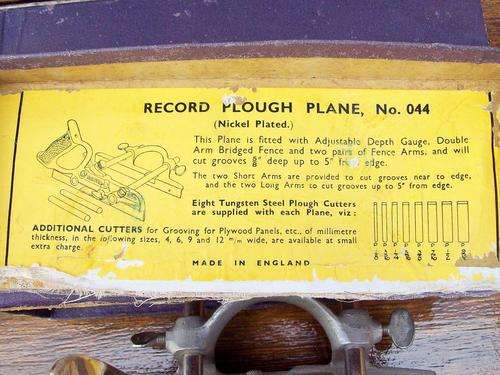 RECORD PLOUGH PLANE, No. 044
(Nickel Plated.)
This Plane is fitted with Adjustable Depth Gauge, Double
Arm Bridged Fence and two pairs of Fence Arms, and will
cut grooves deep up to 5" from edge.
The two Short Arms are provided to cut grooves near to edge,
and the two Long Arms to cut grooves up to 5" from edge.
Eight Tungsten Steel Plough Cutters
are supplied with each Plane, viz :
ADDITIONAL CUTTERS for Grooving for Plywood Panels, etc., of millimetre
thickness, in the following sizes, 4, 6, 9 and 12 m/m wide, are available at small
extra charge.
MADE IN ENGLAND